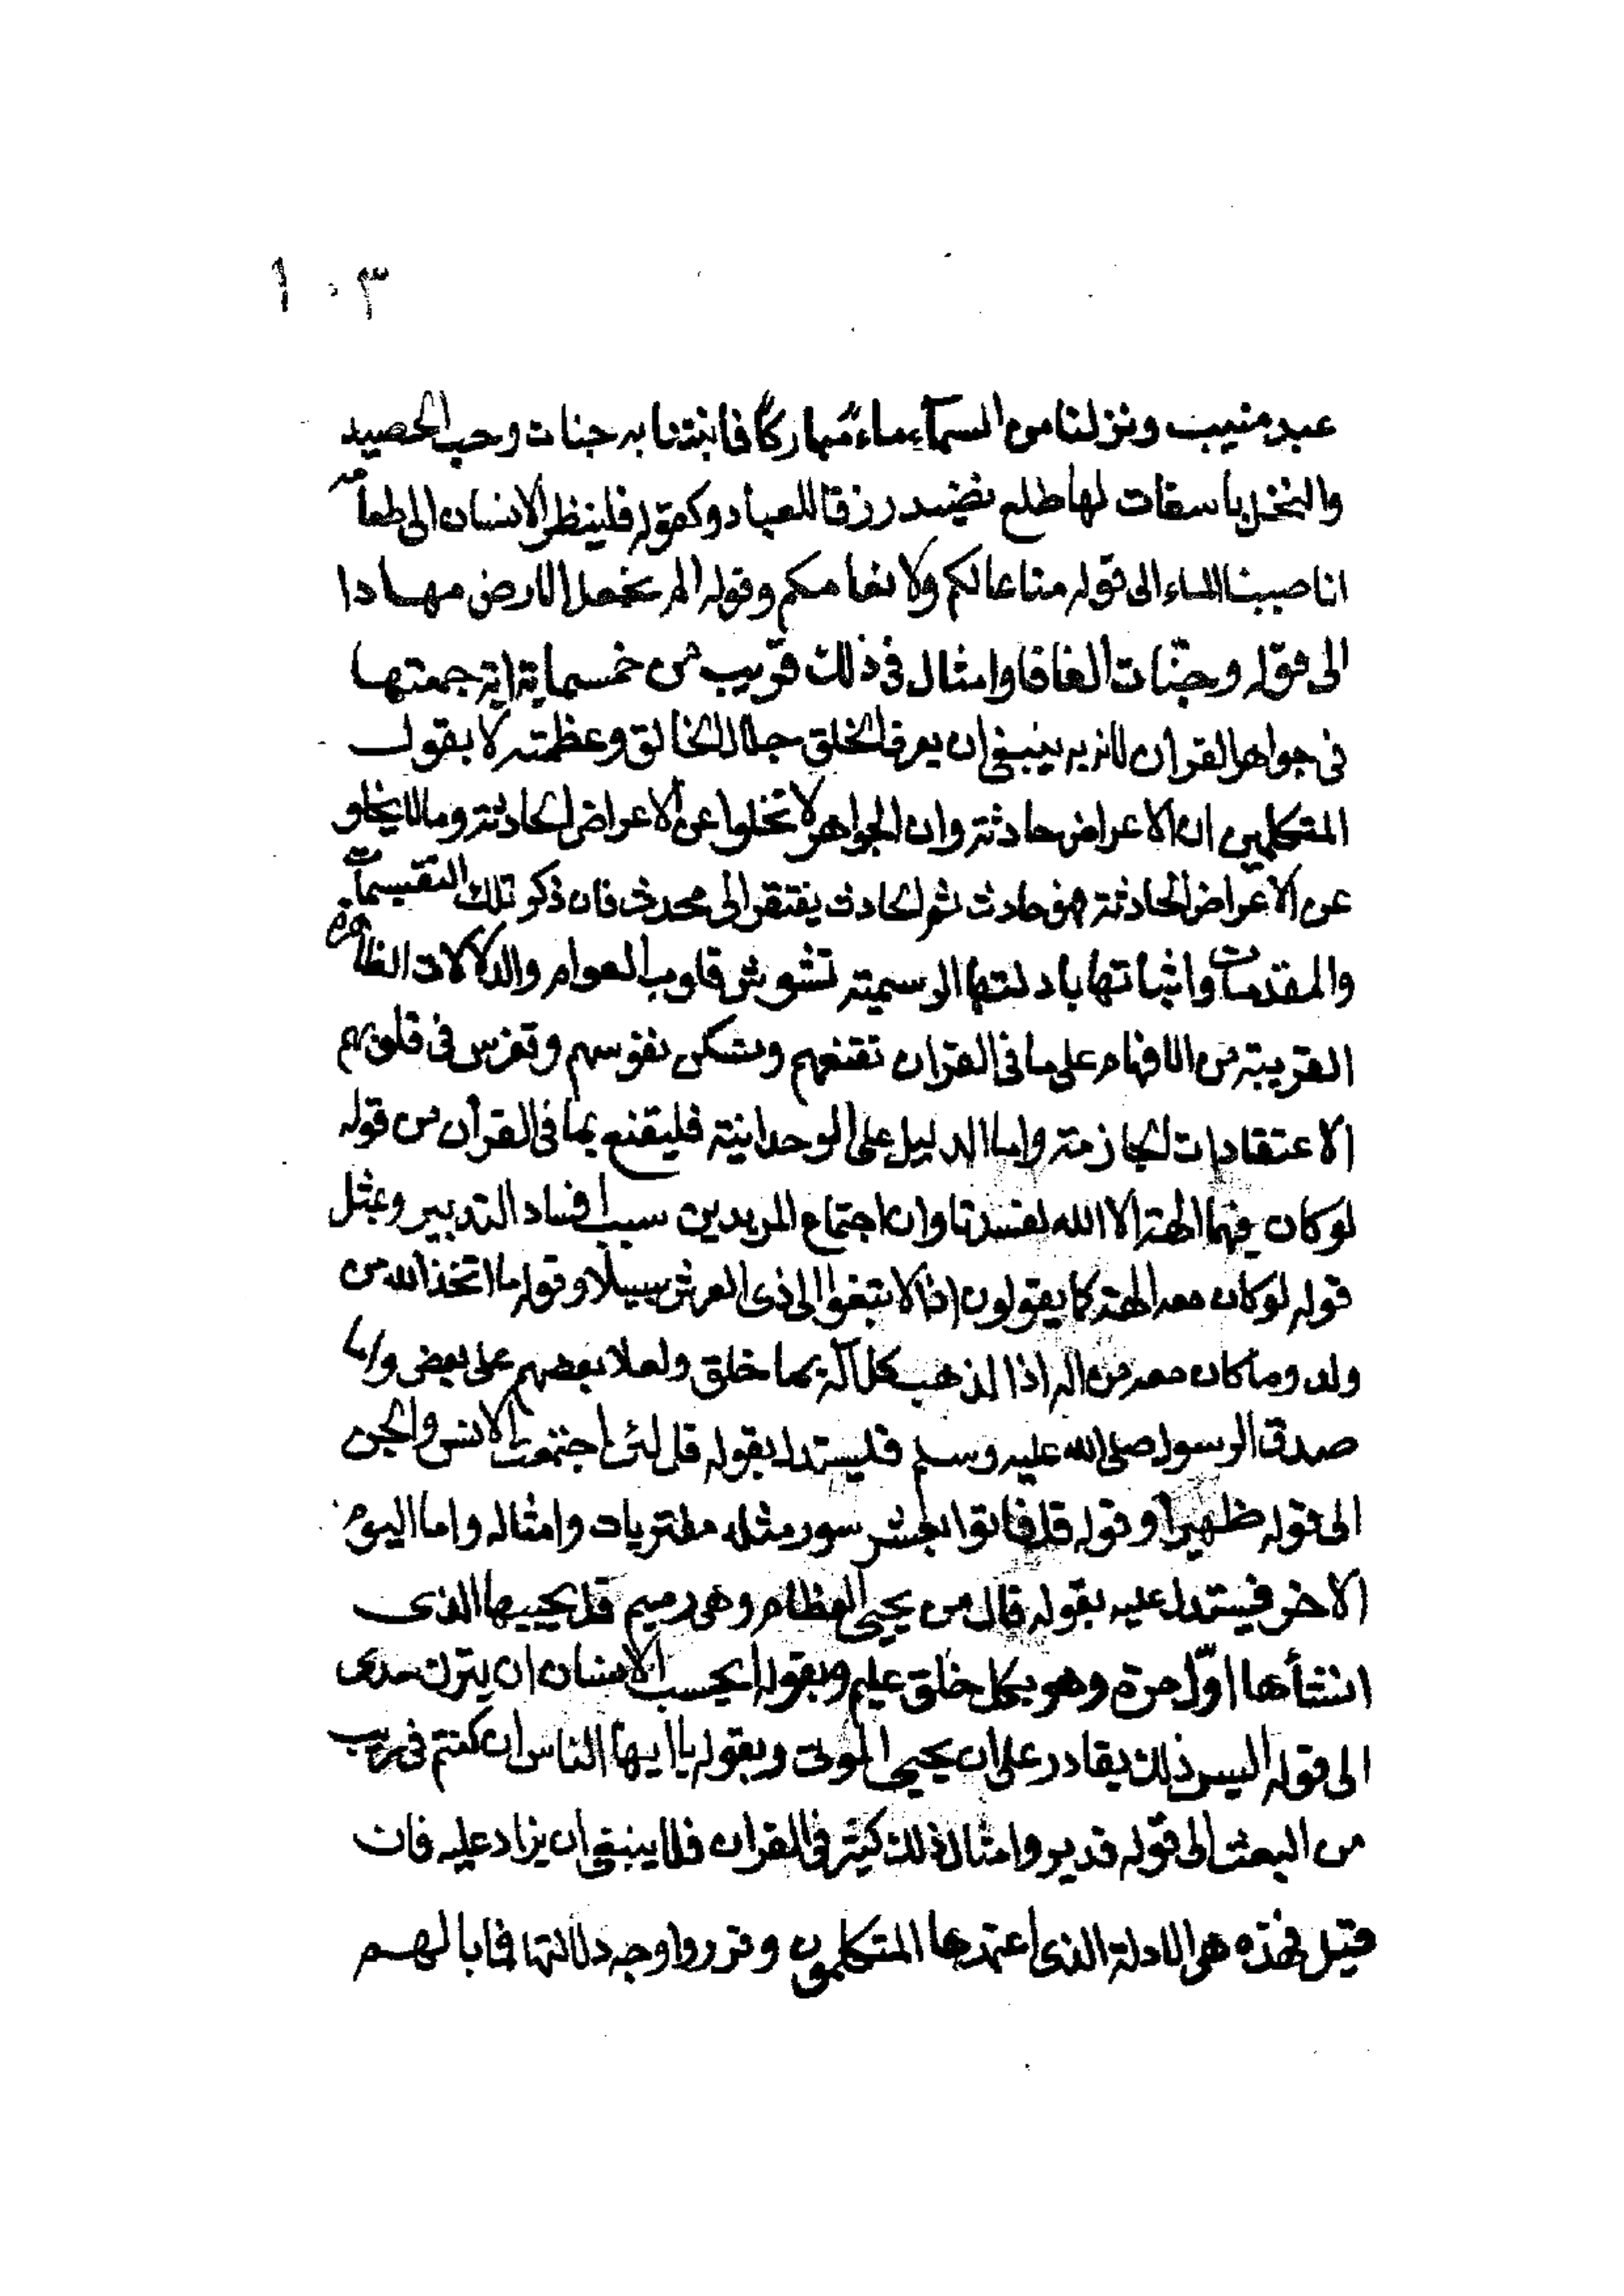 ١٠٣
عبد منيب ونزلنا من السمآء ماءً مباركًا فانبتنا به جنات وحب الحصيد
والنخل باسقات لها طلع نضيد رزقا للعباد وكقوله فلينظر الانسان الى طعامه
انا صببنا الماء الى قوله متاعا لكم ولانعامكم وقوله الم نجعل الارض مهادا
الى قوله وجنّات الفافا وامثال فى ذلك قريب من خمسماية اية جمعتها
فى جواهر القران لانه به ينبغى ان يعرف الخلق جلال الخالق وعظمته لا بقول
المتكلمين ان الاعراض حادثة وان الجواهر لا تخلوا عن الاعراض الحادثة وما لا يخلو
عن الاعراض الحادثة فهو حادث ثم الحادث يفتقر الى محدث فان ذكر تلك التقسيمات
والمقدمات واثباتها بادلتها الرسمية تشوش قلوب العوام والدلالات الظاهرة
القريبة من الافهام على ما فى القران تقنعهم وتسكن نفوسهم وتغرس فى قلوبهم
الاعتقادات الجازمة واما الدليل على الوحدانية فليقنع بما فى القرآن من قوله
لو كان فيهما الهة الا الله لفسدتا وان اجتماع المريدين سبب افساد التدبير وبمثل
قوله لو كان معه الهة كما يقولون اذا لابتغوا الى ذى العرش سبيلا وقوله ما اتخذ الله من
ولد وما كان معه من اله اذا لذهب كل آله بما خلق ولعلا بعضهم على بعض واما
صدق الرسول صلى الله عليه وسلم فليستدل بقوله قل لئن اجتمعت الانس والجن
الى قوله ظهيرا وقوله قل فاتوا بعشر سور مثله مفتريات وامثاله واما اليوم
الاخر فيستدل عليه بقوله قال من يحيى العظام وهى رميم قل يحييها الذى
انشأها اوّل مرة وهو بكل خلق عليم وبقوله ايحسب الانسان ان يترك سدى
الى قوله اليس ذلك بقادر على ان يحيى الموتى وبقوله يا ايها الناس ان كنتم فى ريب
من البعث الى قوله قدير وامثال ذلك كثير فى القران فلا ينبغى ان يزاد عليه فان
قيل فهذه هى الادلة الذى اعتمدها المتكلمون وقرروا وجه دلالتها فما بالهم